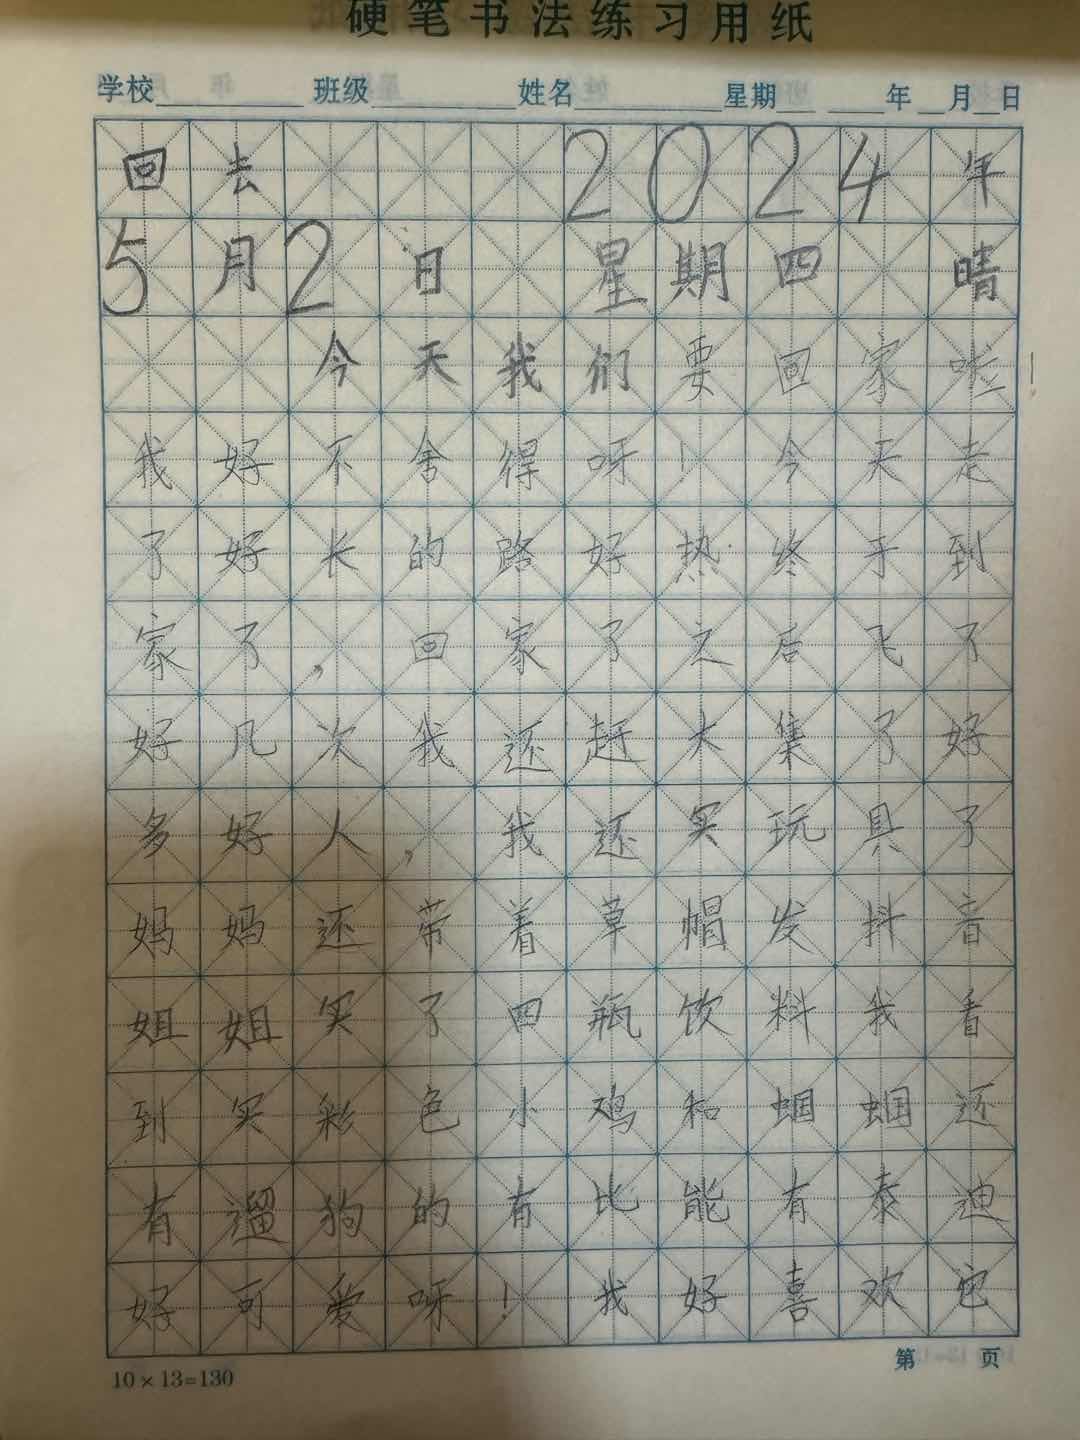 硬笔书法练习用纸
学校 班级 姓名 星期 年 月 日
回去 2024年
5月2日 星期四 晴
今天我们要回家啦
我好不舍得呀！今天走
了好长的路好热终于到
家了，回家了之后飞了
好几次我还赶大集了好
多好人，我还买玩具了
妈妈还带着草帽发抖音
姐姐买了四瓶饮料我看
到买彩色小鸡和蝈蝈还
有遛狗的有比能有泰迪
好可爱呀！我好喜欢它
第 页
10×13=130